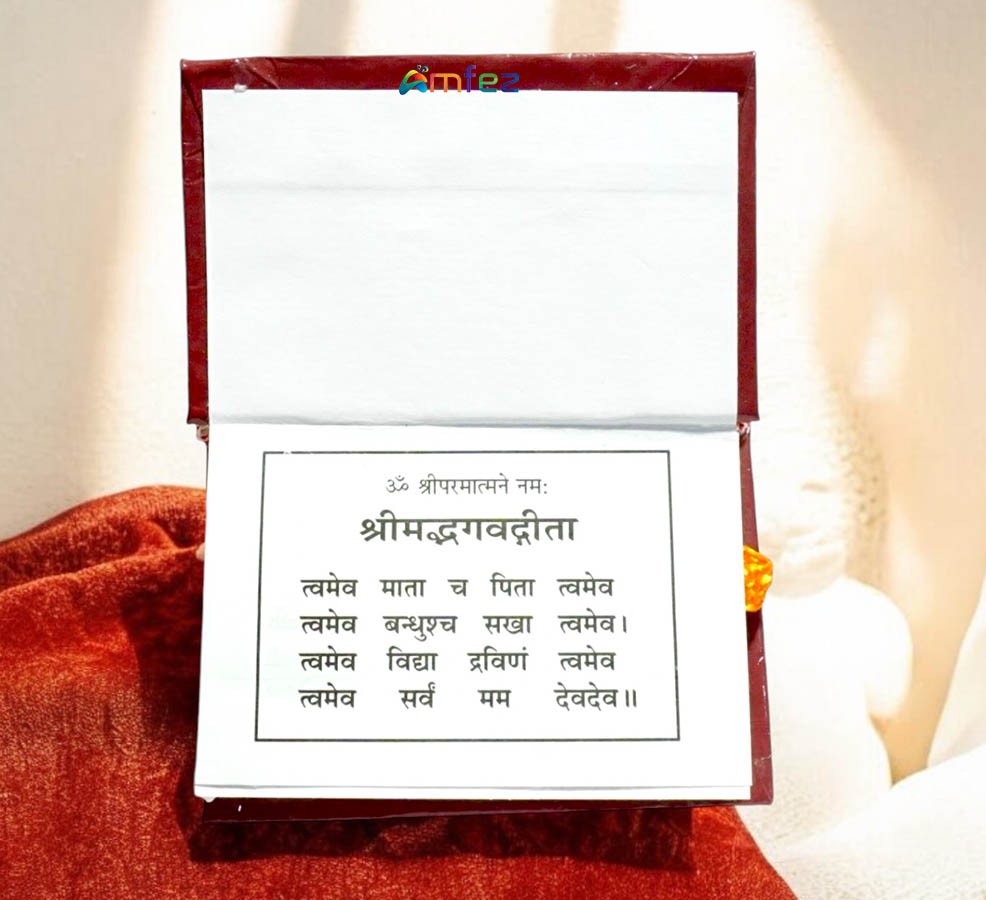 Amfez
ॐ श्रीपरमात्मने नमः
श्रीमद्भगवद्गीता
त्वमेव माता च पिता त्वमेव
त्वमेव बन्धुश्च सखा त्वमेव।
त्वमेव विद्या द्रविणं त्वमेव
त्वमेव सर्वं मम देवदेव॥